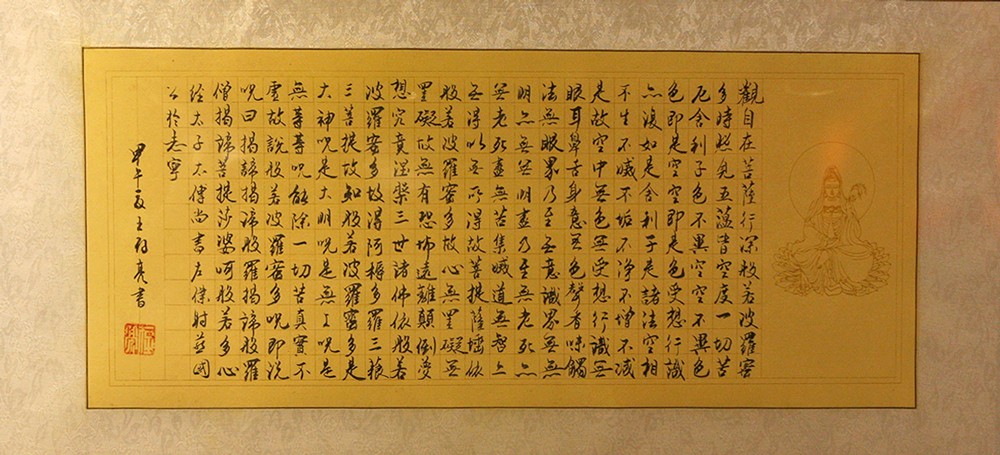 觀自在菩薩行深般若波羅蜜
多時照見五蘊皆空度一切苦
厄舍利子色不異空空不異色
色即是空空即是色受想行識
亦復如是舍利子是諸法空相
不生不滅不垢不淨不增不減
是故空中無色無受想行識無
眼耳鼻舌身意無色聲香味觸
法無眼界乃至無意識界無無
明亦無無明盡乃至無老死亦
無老死盡無苦集滅道無智亦
無得以無所得故菩提薩埵依
般若波羅蜜多故心無罣礙無
罣礙故無有恐怖遠離顛倒夢
想究竟涅槃三世諸佛依般若
波羅蜜多故得阿耨多羅三藐
三菩提故知般若波羅蜜多是
大神咒是大明咒是無上咒是
無等等咒能除一切苦真實不
虛故說般若波羅蜜多咒即說
咒曰揭諦揭諦般羅揭諦般羅
僧揭諦菩提莎婆呵般若多心
經太子太傅尚書左僕射燕國
公於志寧
甲午夏王亮書